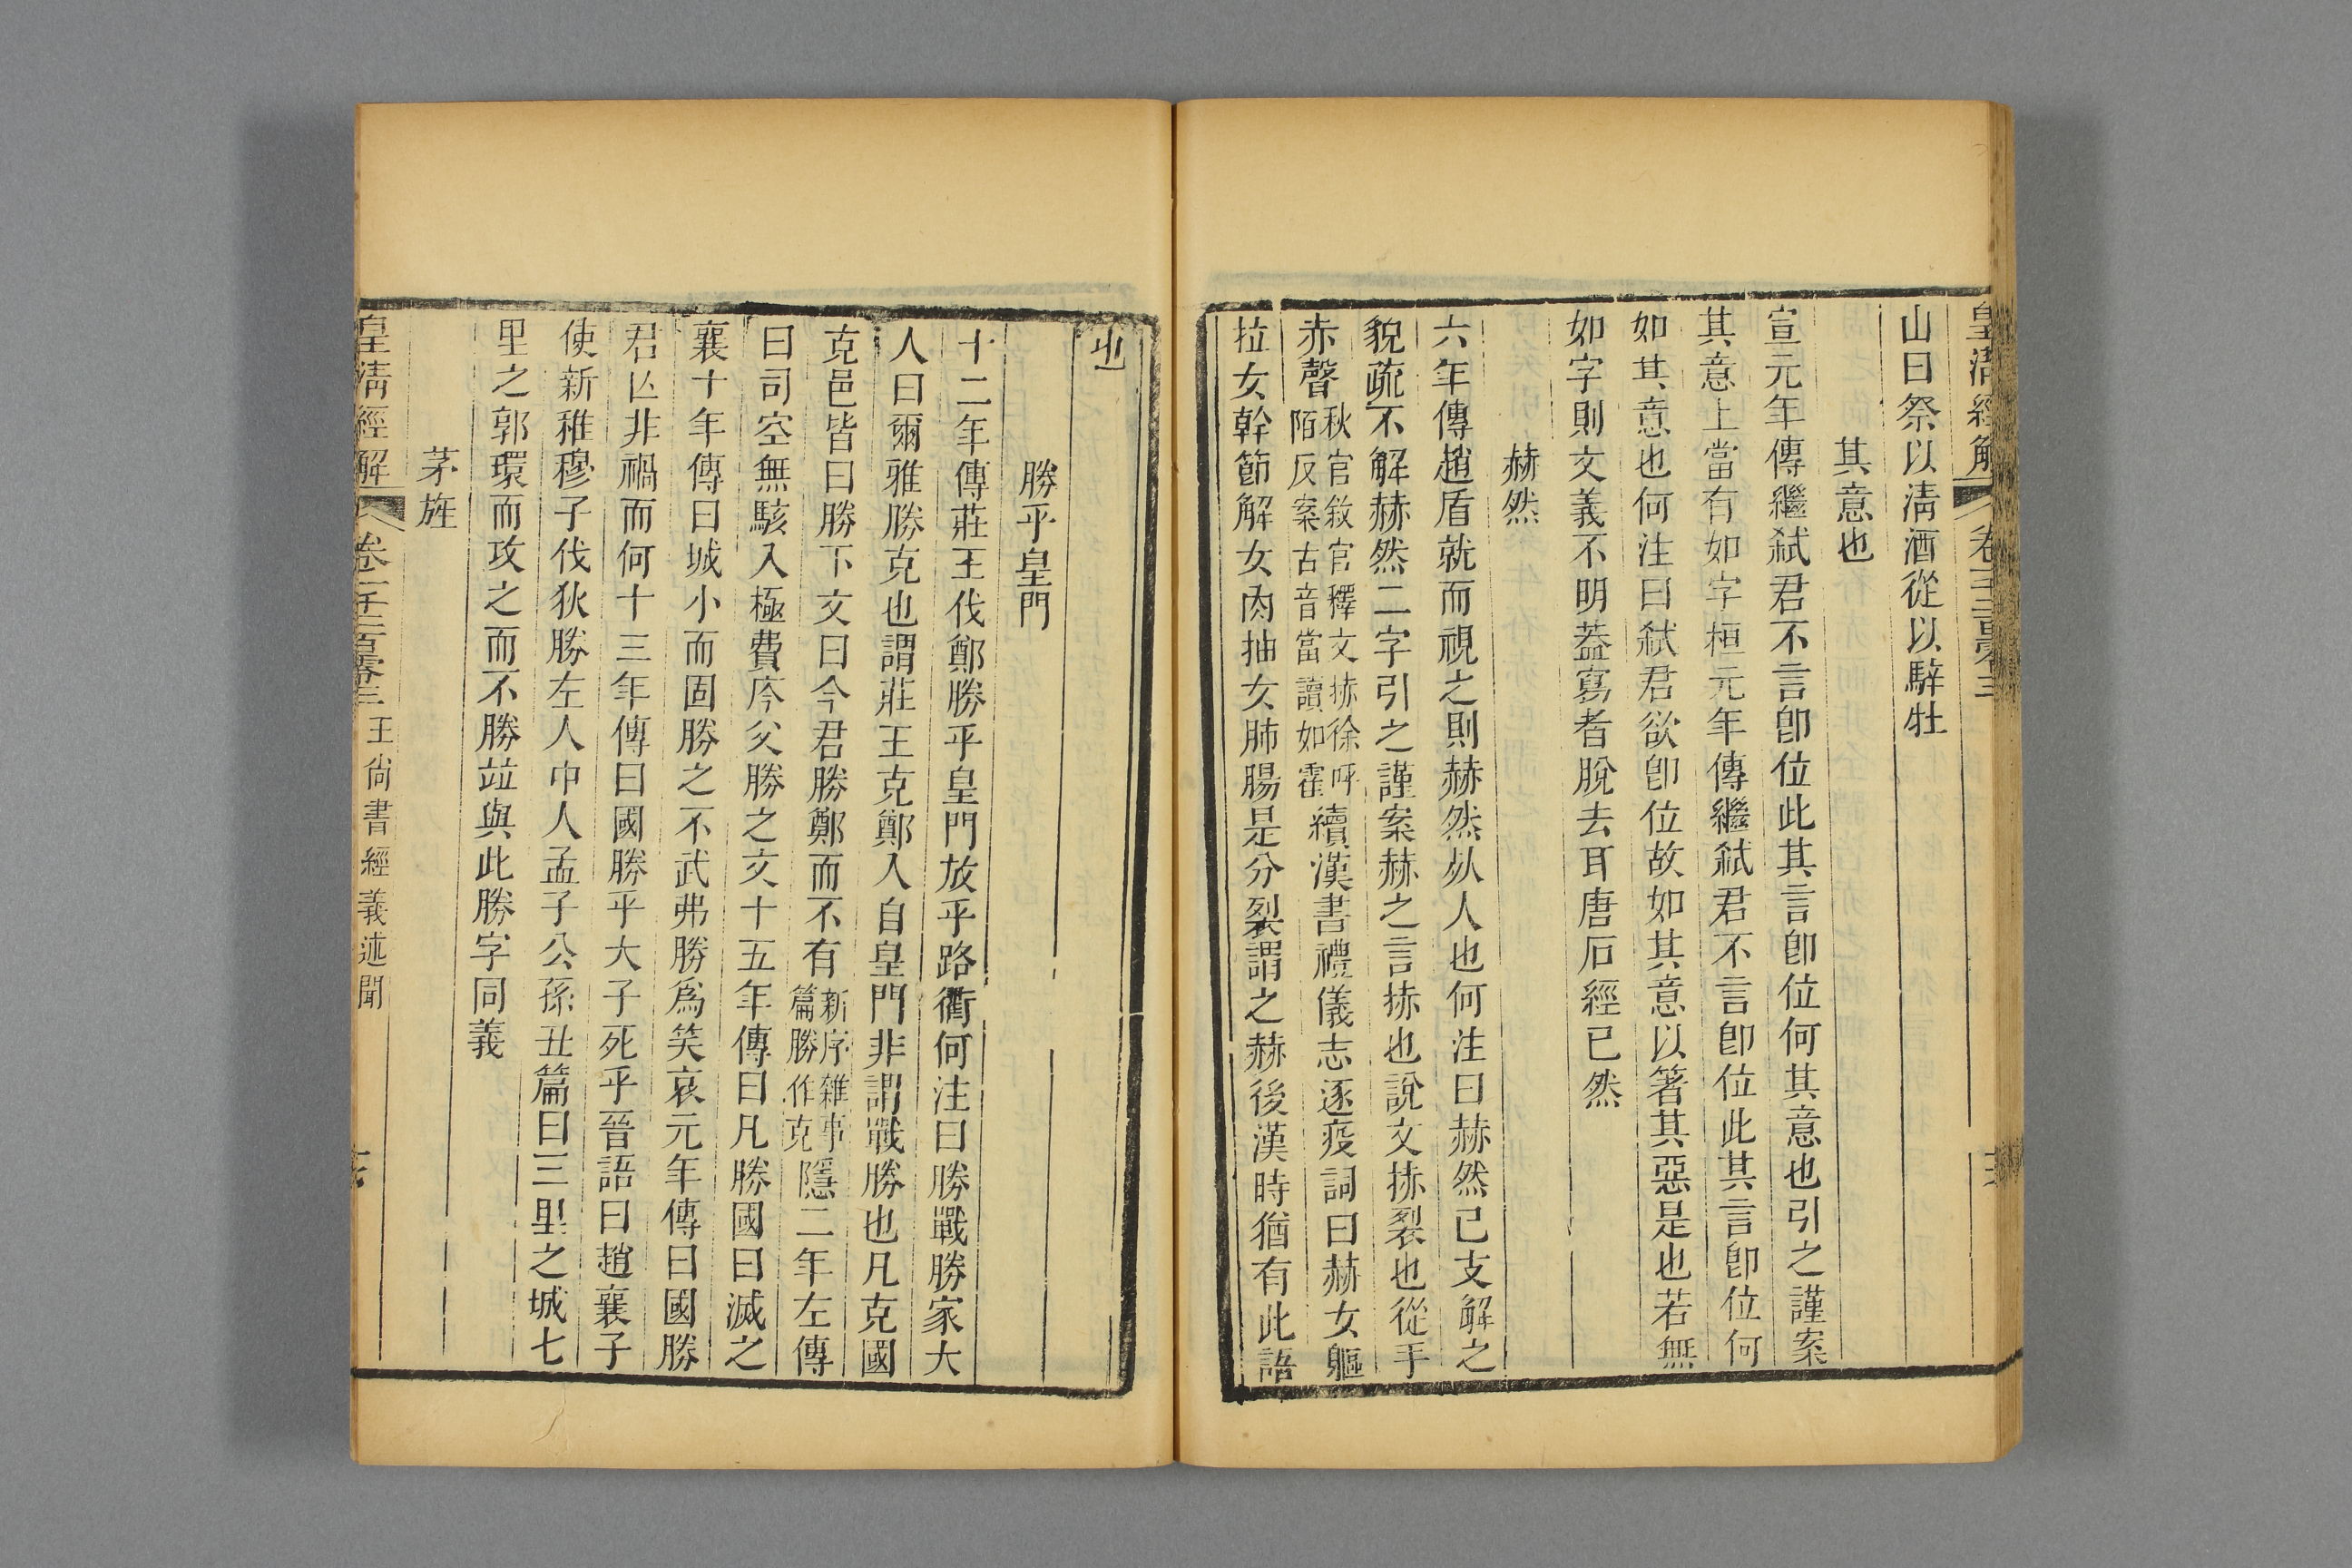 皇清經解
山曰祭以清酒從以騂牡
其意也
宣元年傳繼弒君不言卽位此其言卽位何其意也引之謹案
其意上當有如字桓元年傳繼弒君不言卽位此其言卽位何
如其意也何注曰弒君欲卽位故如其意以箸其惡是也若無
如字則文義不明葢寫者脫去耳唐石經已然
赫然
六年傳趙盾就而視之則赫然从人也何注曰赫然已支解之
貌疏不解赫然二字引之謹案赫之言捇也說文捇裂也從手
赤聲秋官敘官釋文捇徐呼陌反案古音當讀如霍續漢書禮儀志逐疫詞曰赫女軀
拉女幹節解女肉抽女肺腸是分裂謂之赫後漢時猶有此語
也
勝乎皇門
十二年傳莊王伐鄭勝乎皇門放乎路衢何注曰勝戰勝家大
人曰爾雅勝克也謂莊王克鄭入自皇門非謂戰勝也凡克國
克邑皆曰勝下文曰今君勝鄭而不有新序雜事篇勝作克隱二年左傳
曰司空無駭入極費庈父勝之文十五年傳曰凡勝國曰滅之
襄十年傳曰城小而固勝之不武弗勝爲笑哀元年傳曰國勝
君亾非禍而何十三年傳曰國勝乎大子死乎晉語曰趙襄子
使新稚穆子伐狄勝左人中人孟子公孫丑篇曰三里之城七
里之郭環而攻之而不勝竝與此勝字同義
茅旌
皇清經解 卷一千二百零三 王尚書經義述聞